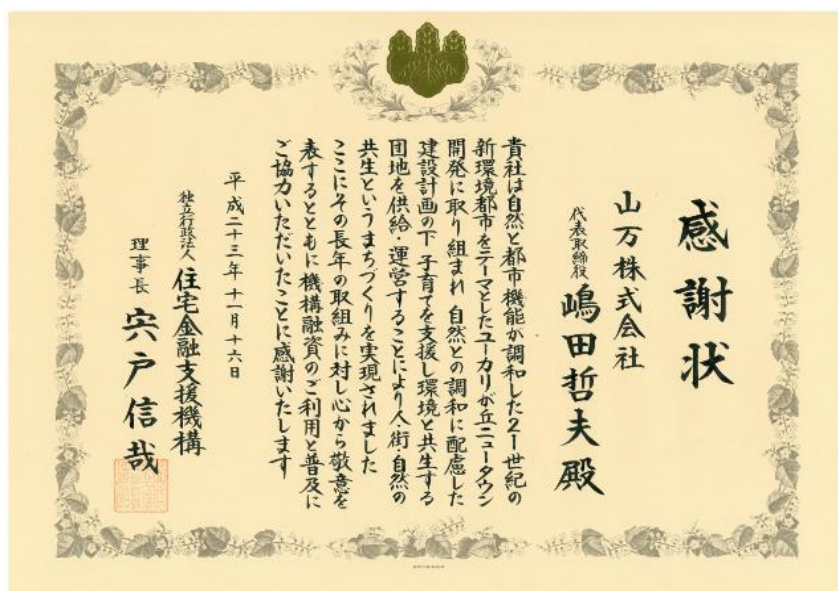 感謝状
山万株式会社
代表取締役 嶋田哲夫殿
貴社は自然と都市機能が調和した21世紀の
新環境都市をテーマとしたユーカリが丘ニュータウン
開発に取り組まれ 自然との調和に配慮した
建設計画の下 子育てを支援し環境と共生する
団地を供給・運営することにより人・街・自然の
共生というまちづくりを実現されました
ここにその長年の取組みに対し心から敬意を
表するとともに機構融資のご利用と普及に
ご協力いただいたことに感謝いたします
平成二十三年十一月十六日
独立行政法人 住宅金融支援機構
理事長 宍戸信哉